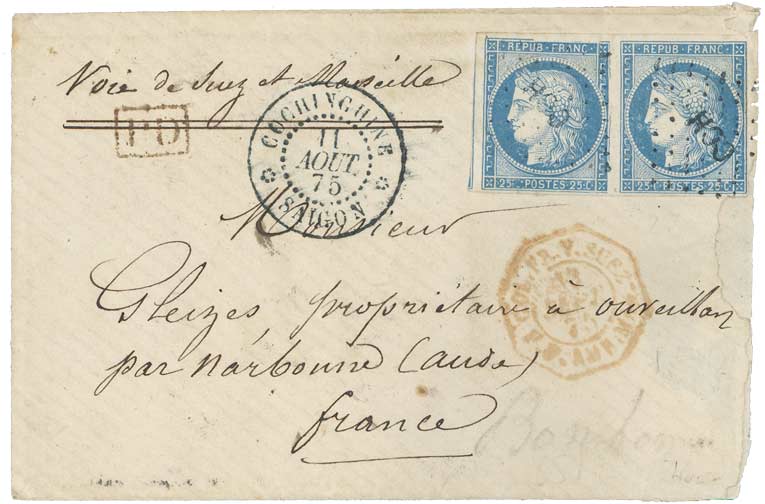 REPUB · FRANC ·
25c · POSTES · 25c
REPUB · FRANC ·
25c · POSTES · 25c
Voie de Suez et Marseille
PD
COCHINCHINE
11
AOUT
75
SAIGON
Monsieur
Gleizes, propriétaire à ouveillan
par narbonne (aude)
france
V. SUEZ